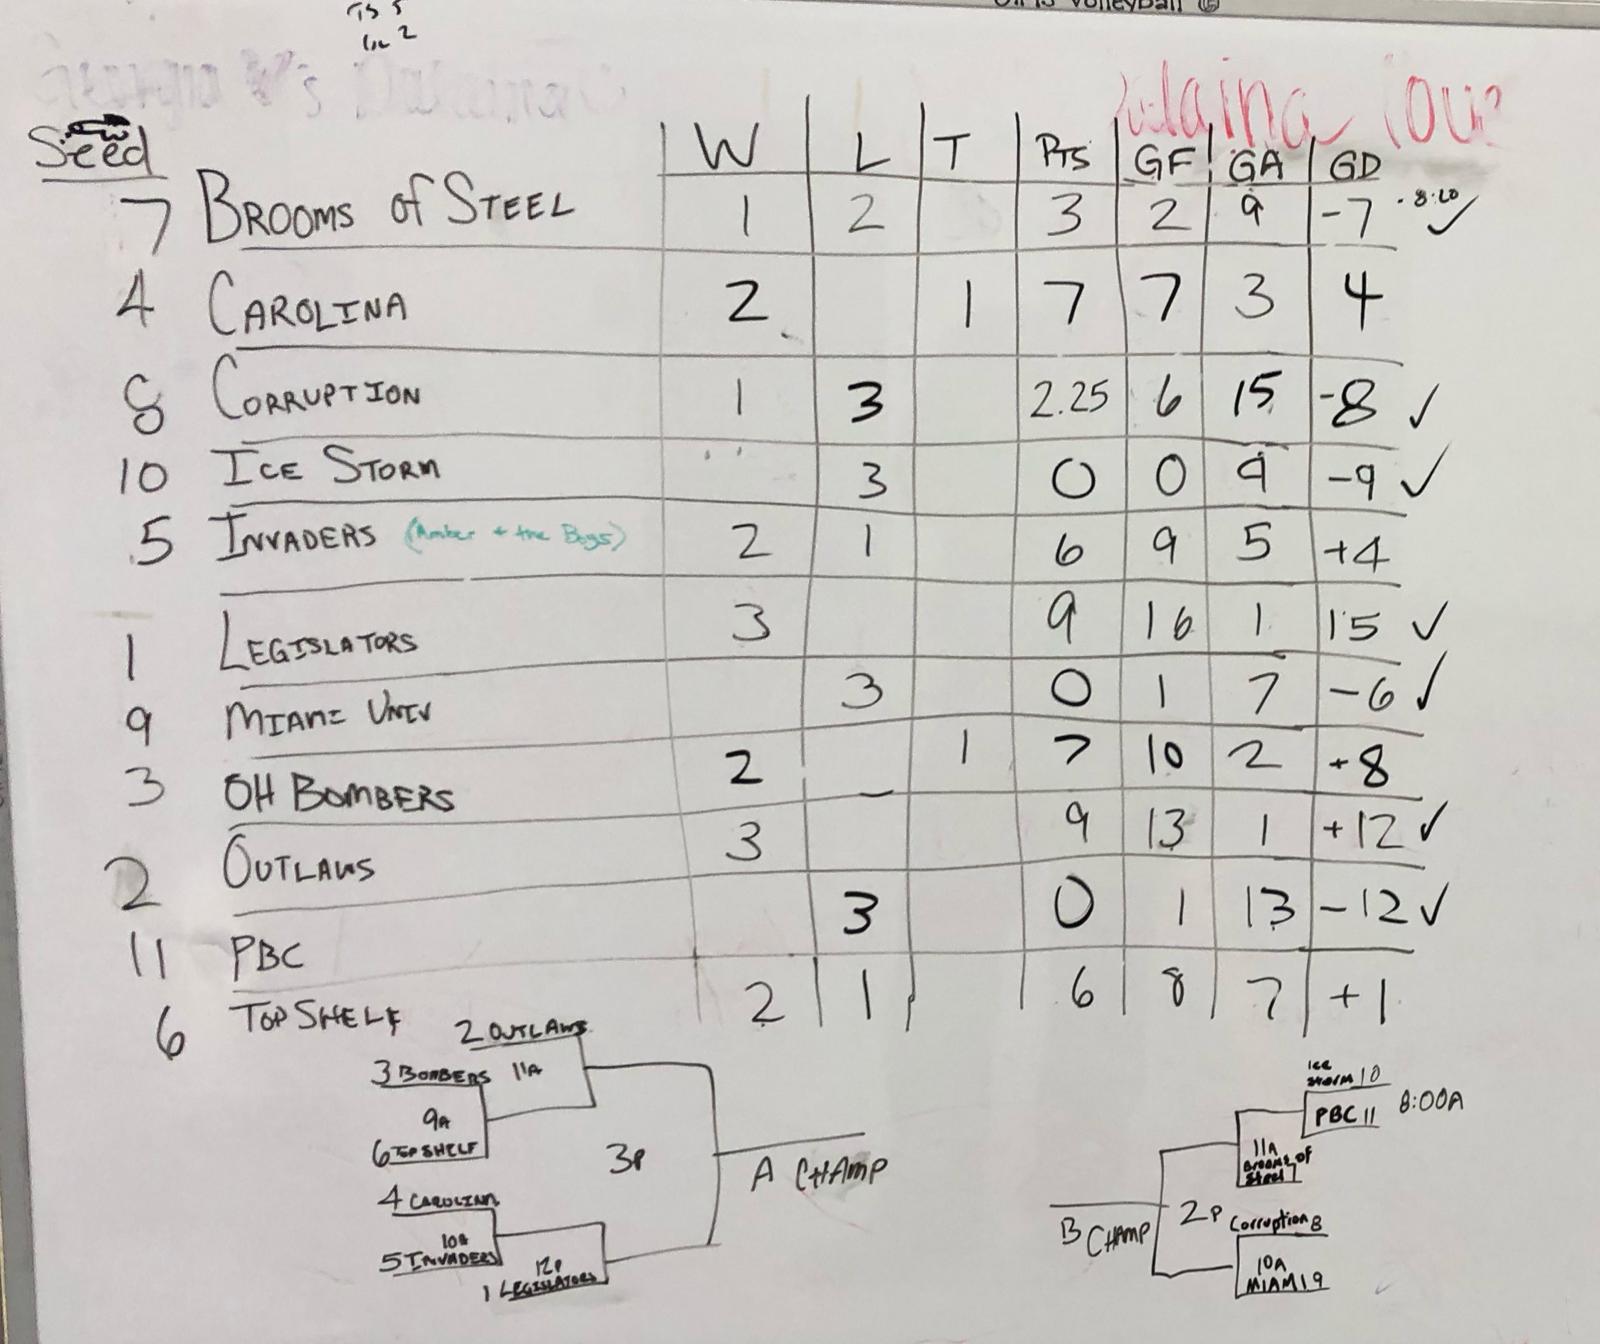 Girls Volleyball
Seed W L T PTS GF GA GD
7 BROOMS of STEEL 1 2 3 2 9 -7 ✓
4 CAROLINA 2 1 7 7 3 4
8 CORRUPTION 1 3 2.25 6 15 -8 ✓
10 ICE STORM 3 0 0 9 -9 ✓
5 INVADERS (Amber + the Boys) 2 1 6 9 5 +4
1 LEGISLATORS 3 9 16 1 15 ✓
9 MIAMI UNIV 3 0 1 7 -6 ✓
3 OH BOMBERS 2 1 7 10 2 +8
2 OUTLAWS 3 9 13 1 +12 ✓
11 PBC 3 0 1 13 -12 ✓
6 TOP SHELF 2 1 6 8 7 +1
2 OUTLAWS
11A
3 BOMBERS
9A
6 TOP SHELF
3P
A CHAMP
4 CAROLINA
10A
5 INVADERS
12P
1 LEGISLATORS
ICE
STORM 10
PBC 11 8:00A
11A
BROOMS of
Steel 7
B CHAMP
2P
Corruption 8
10A
MIAMI 9